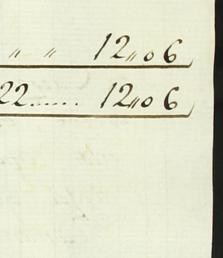 " " 12,,06
22...... 12,,06